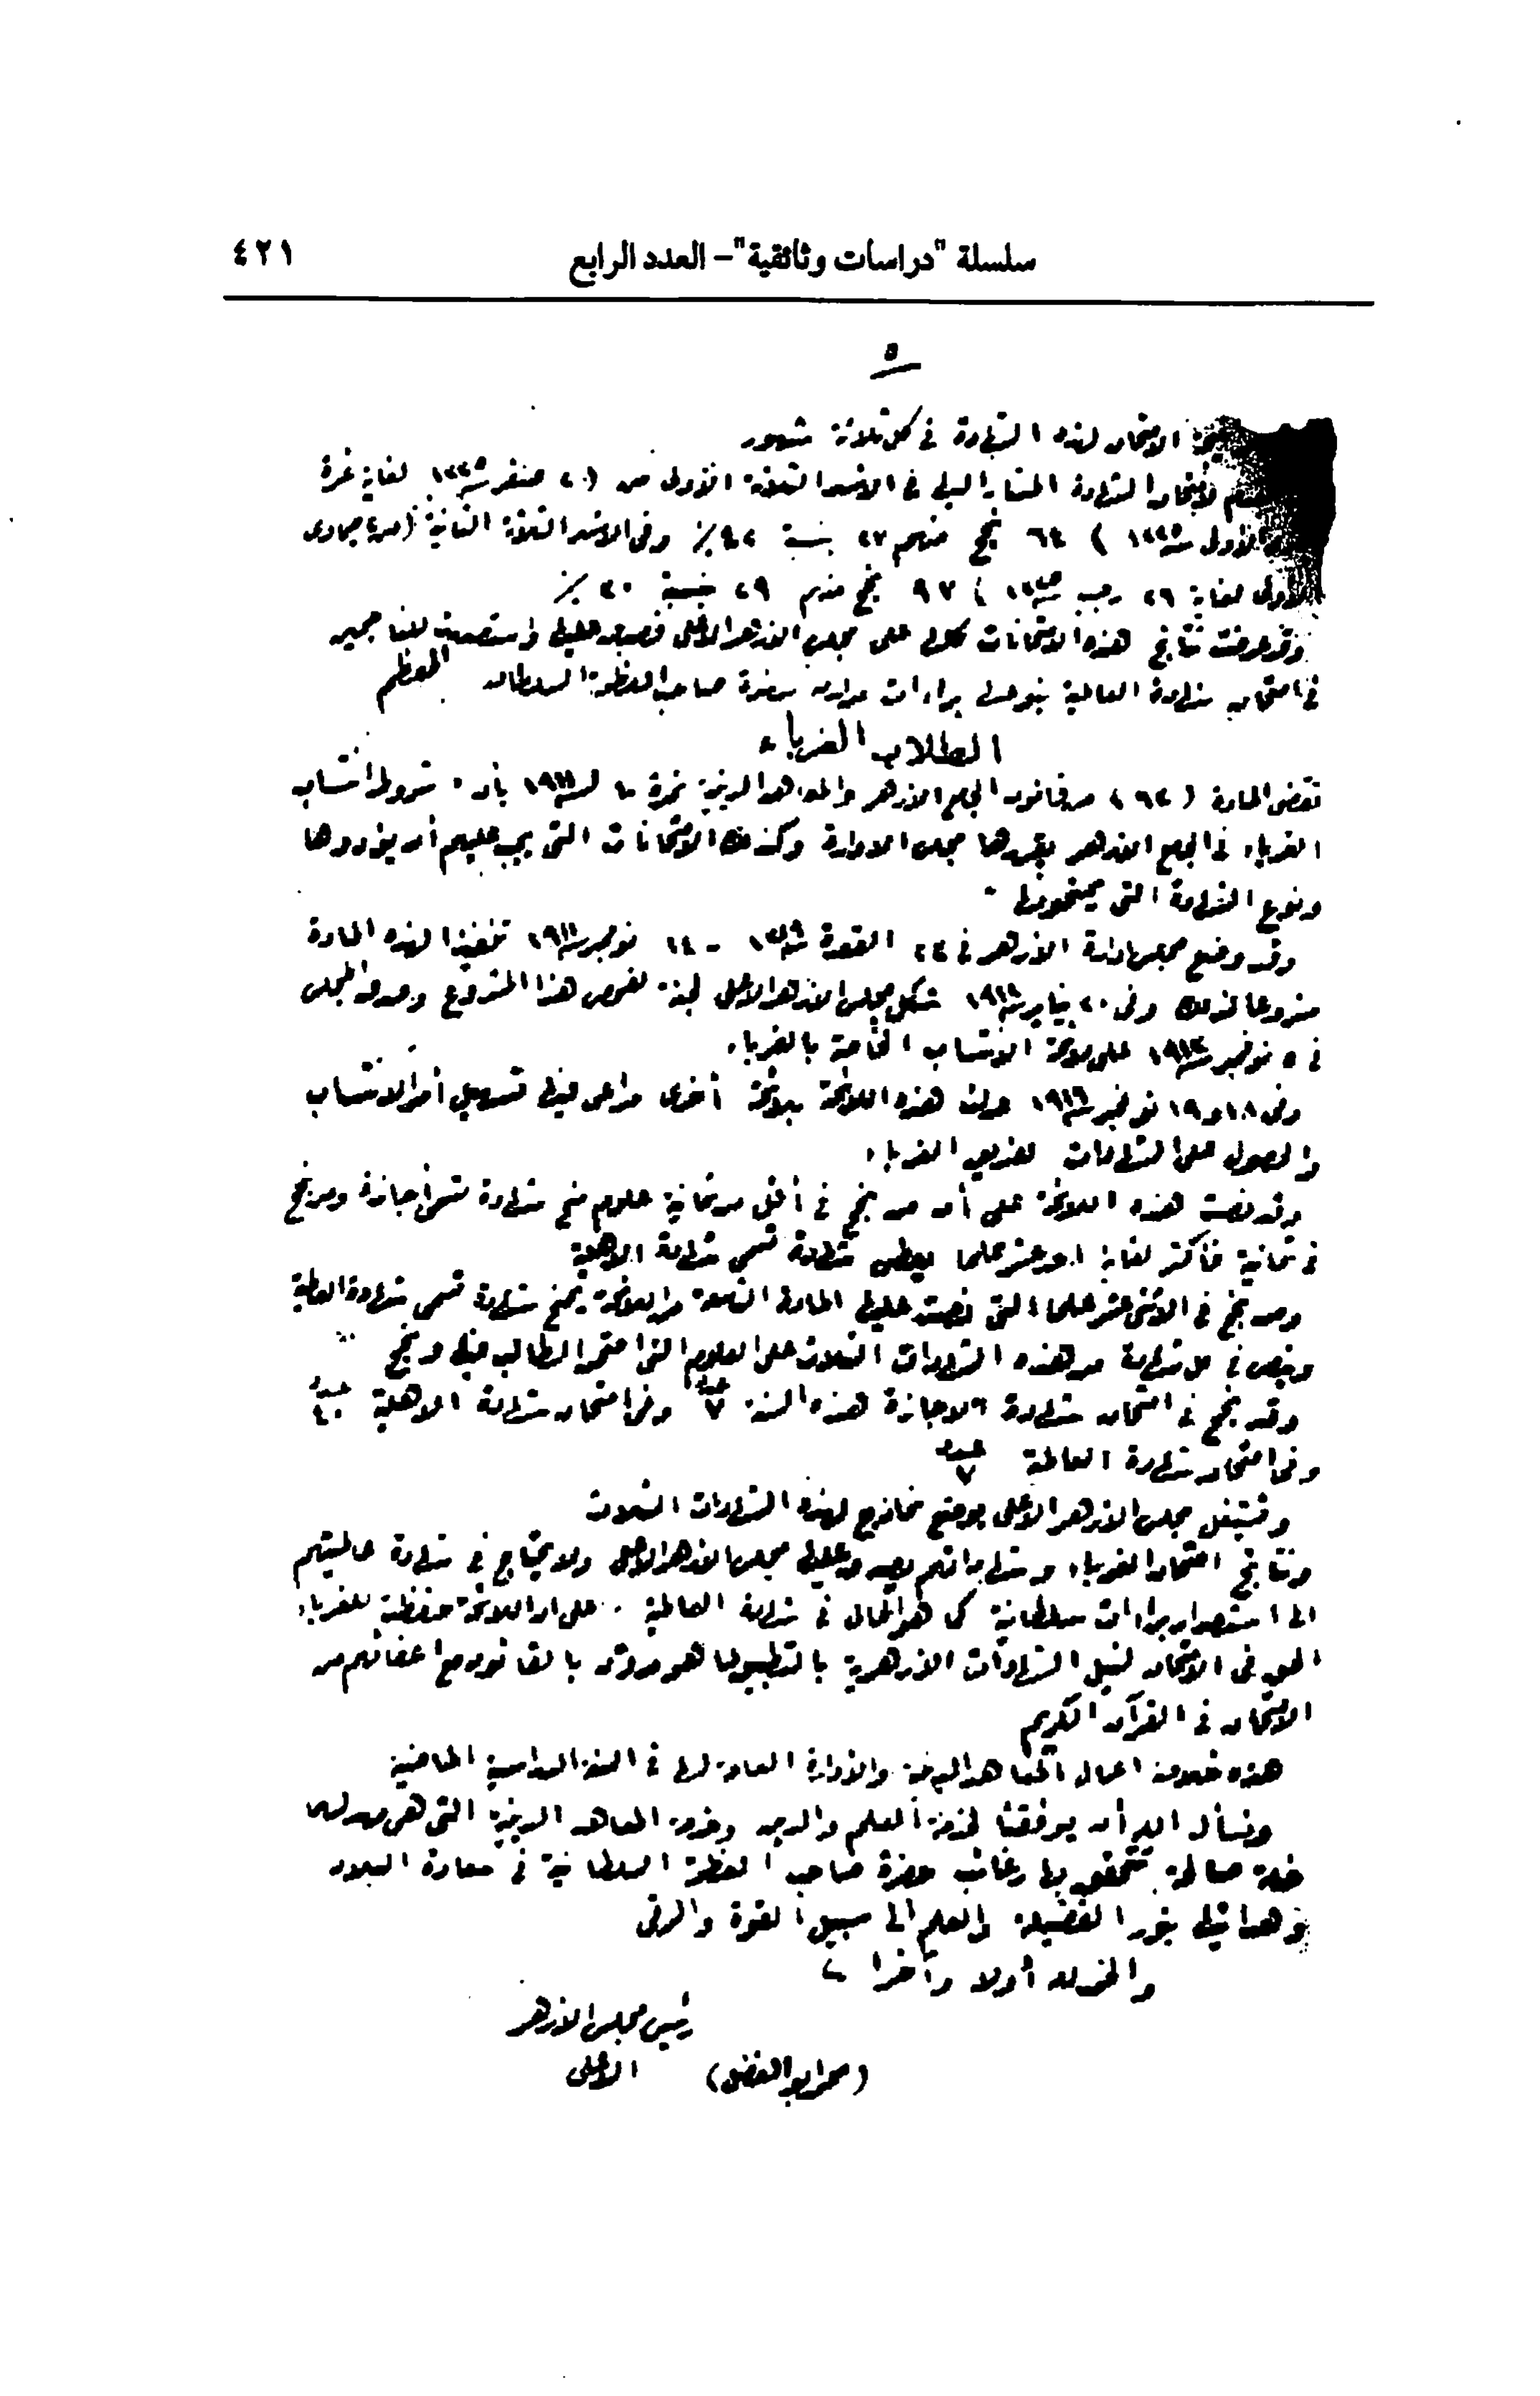 سلسلة "دراسات وثائقية"- العدد الرابع ٤٢١
٥
الامتحان لهذه الشهادة في كل ثلاثة شهور
لامتحان الشهادة المشار اليها في الاشهر الثلاثة الاولى من (٢٠ صفر سنة لغاية غرة
الاولى سنة ) ٦٤ نجح منهم ٢٧ بنسبة ٤٢ ٪ وفى الاشهر الثلاثة الثانية جمادى
الاولى لغاية ٢٦ رجب سنة ) ٩٧ نجح منهم ٢٩ بنسبة ٣٠ ٪
وقد عرضت نتائج هذه الامتحانات كلها على مجلس الازهر الاعلى فصدق عليها واستصدرت للناجحين
في امتحان شهادة العالمية بتوصل براءات عالية حضرة صاحب العظمة السلطان المعظم
الطلاب الغرباء
تقضى المادة (٦٢) من قانون الجامع الازهر والمعاهد الدينية نمرة ١٠ لسنة ١٩١١ بأن شروط انتساب
الغرباء في الجامع الازهر يقررها مجلس الادارة وكذلك الامتحانات التي يجب عليهم أن يؤدوها
ونوع الشهادة التي يمنحونها
وقد وضع مجلس ادارة الازهر في ٢٢ القعدة سنة ١٣٢٩ - ١٤ نوفمبر سنة ١٩١١ تنفيذا لهذه المادة
مشروعا لذلك وفى ٢٠ يناير سنة شكل مجلس الازهر الاعلى لجنة لفحص هذا المشروع وصدق المجلس
في ٥ نوفمبر سنة على لائحة الانتساب الخاصة بالغرباء
وفى ١٨ و ١٩ نوفمبر سنة ١٩١٦ عدلت هذه اللائحة بلائحة أخرى مراعى فيها تسهيل أمر الانتساب
والحصول على الشهادات لفريق الغرباء
وقد نصت هذه اللائحة على أن من نجح في أقل من ثمانية علوم منح شهادة تسمى اجازة ومن نجح
في ثمانية فأكثر لغاية احد عشر علما يعطى شهادة تسمى شهادة الاهلية
ومن نجح في الاثنى عشر علما التى نصت عليها المادة التاسعة من اللائحة يمنح شهادة تسمى شهادة العالمية
وينص في كل شهادة من هذه الشهادات الثلاث على العلوم التى امتحن الطالب فيها ونجح
وقد نجح في امتحان شهادة الاجازة هذه السنة عدد ٧ وفى امتحان شهادة الاهلية عدد
وفى امتحان شهادة العالمية عدد ٧
وقد اشتغل مجلس الازهر الاعلى بوضع نماذج لهذه الشهادات الثلاث
ونتائج امتحان الغرباء وشهاداتهم يصدق عليها مجلس الازهر الاعلى ولا يحتاج في شهادة عالميتهم
الى استصدار براءات سلطانية كما هو الحال في شهادة العالمية . على ان اللائحة حفظت للغرباء
الحق في الامتحان لنيل الشهادات الازهرية بالتطبيق لما هو مدون بالقانون مع اعفائهم من
الامتحان في القرآن الكريم
هذه خلاصة اعمال المعاهد الدينية والادارة العامة لها في السنة الدراسية الماضية
ونسأل الله أن يوفقنا لخدمة العلم والدين وخدمة المعاهد الدينية التي هى من لهما
خدمة صالحة تتحقق بها رغائب حضرة صاحب العظمة السلطانية في سعادة البلاد
وهدايتها بنور الفضيلة والعلم الى سبيل القوة والرقى
والحمد لله أولا وآخرا
رئيس مجلس الازهر
الاعلى (محمد ابو الفضل)